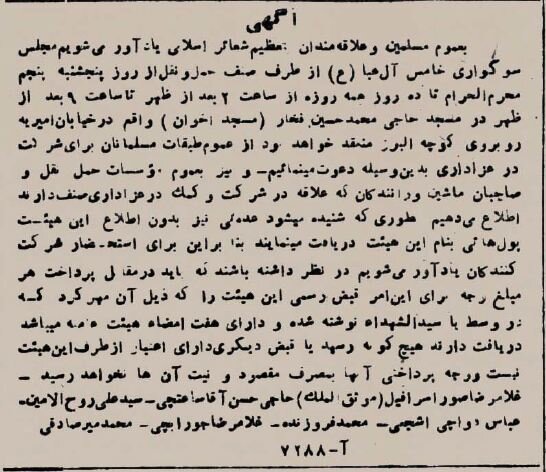 آگهی
بعموم مسلمین و علاقه‌مندان بتعظیم شعائر اسلامی یادآور می‌شویم مجلس
سوگواری خامس آل‌عبا (ع) از طرف صنف حمل و نقل از روز پنجشنبه پنجم
محرم‌الحرام تا ده روز همه روزه از ساعت ۲ بعد از ظهر تا ساعت ۹ بعد از
ظهر در مسجد حاجی محمد حسین فخار (مسجد اخوان) واقع در خیابان امیریه
روبروی کوچه البرز منعقد خواهد بود از عموم طبقات مسلمانان برای شرکت
در عزاداری بدین‌وسیله دعوت مینمائیم- و نیز بعموم مؤسسات حمل و نقل و
صاحبان ماشین و رانندگان که علاقه در شرکت و کمک در عزاداری صنف دارند
اطلاع می‌دهیم طوری که شنیده میشود عده‌ئی نیز بدون اطلاع این هیئت
پول‌هائی بنام این هیئت دریافت مینمایند بنابراین برای استحضار شرکت
کنندگان یادآور می‌شویم در نظر داشته باشند که باید در مقابل پرداخت هر
مبلغ وجه برای این امر قبض رسمی این هیئت را که ذیل آن مهر گرد که
در وسط یا سیدالشهداء نوشته شده و دارای هفت امضاء هیئت عامله میباشد
دریافت دارند هیچ گونه رسید یا قبض دیگری دارای اعتبار از طرف این هیئت
نیست و وجه پرداختی آنها بمصرف مقصود و نیت آن ها نخواهد رسید –
غلامرضا صور اسرافیل (موثق‌الملک) حاجی حسن آقا ساعتچی- سید علی روح‌الامین-
عباس دواچی اشجعی- محمد فروزنده- غلامرضا جورابچی- محمد میرصادقی
آ-۷۲۸۸